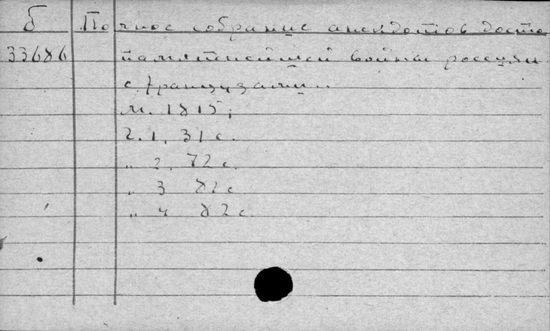 б По лное собрание анекдотов досто
33686 памятнейшей войны россиян
с французами.
М. 1815;
ч. 1, 31 с.
„ 2, 72 с.
„ 3 82 с
„ 4 82 с.